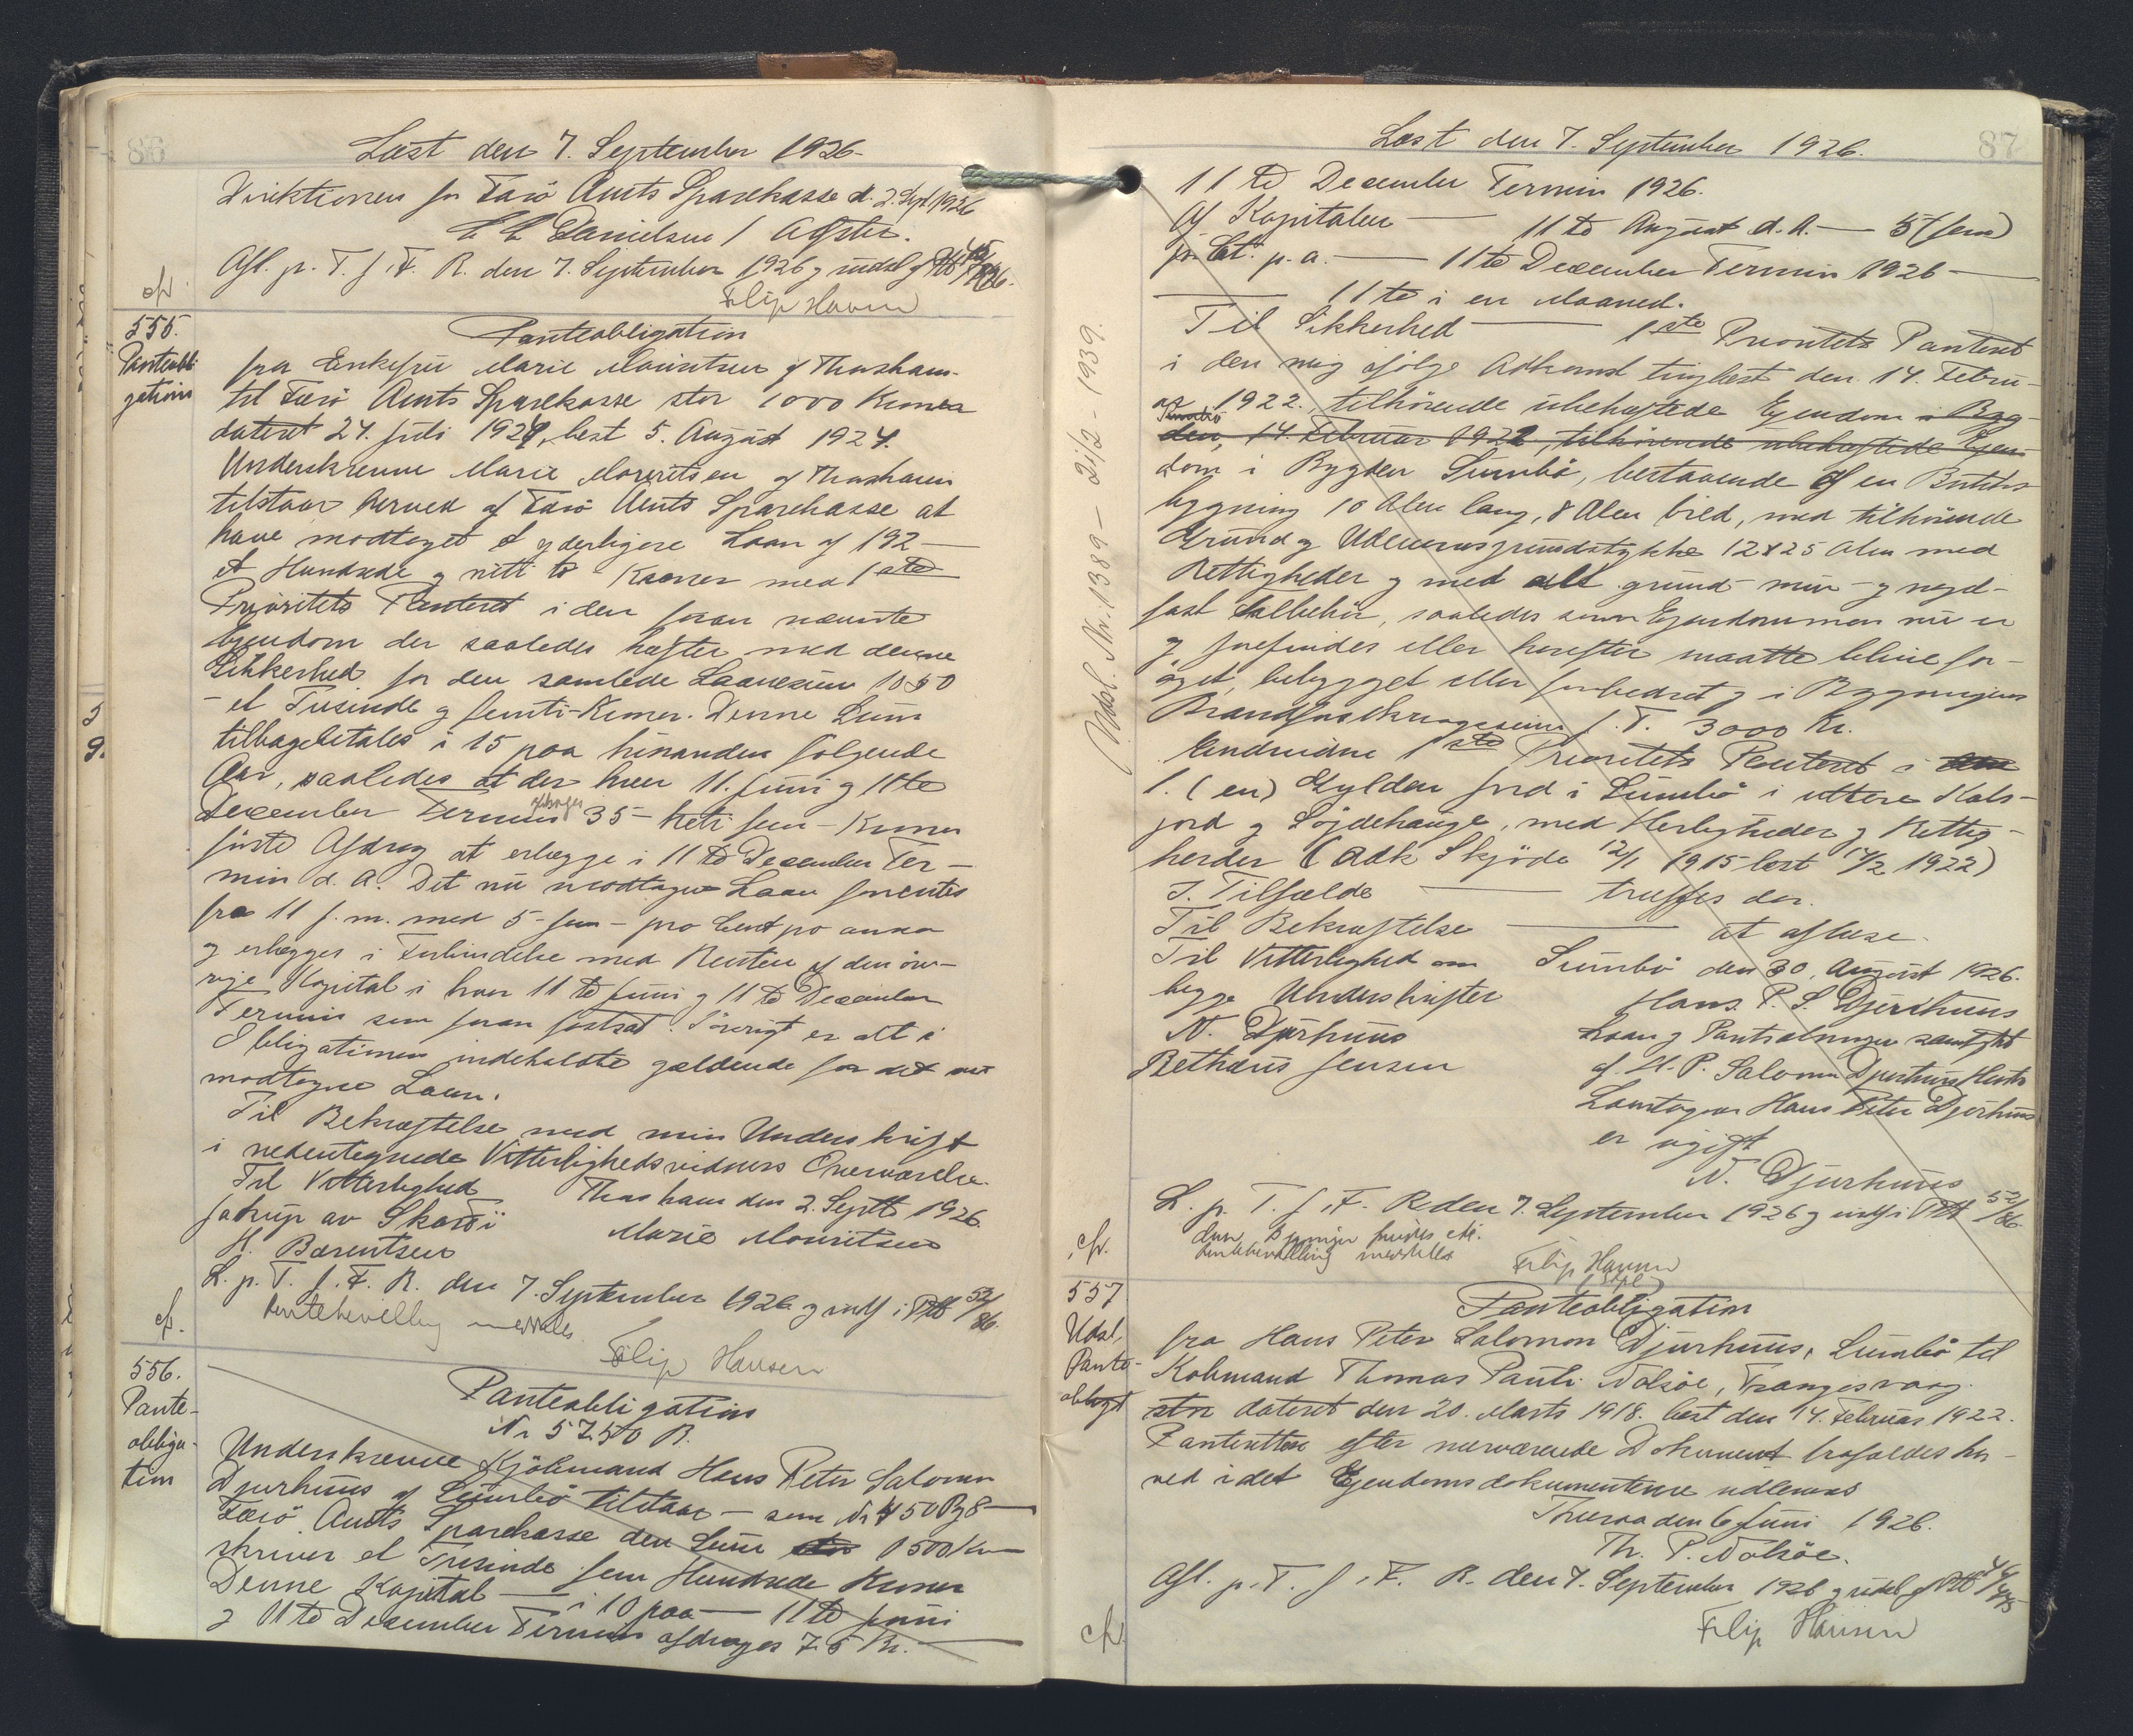 86
Læst den 7. September 1926.
Direktionen for Færö Amts Sparekasse d. 2. Sept 1926
Danielsen /
Afl. p. T. f. F. R. den 7. September 1926 g
Filip Hansen
cfr.
555.
Panteobli
gation
Panteobligation
fra Enkefrue Marie Mouritsen af Thorshavn
til Færö Amts Sparekasse stor 1000 Kroner
dateret 24. juli 1924, læst 5. August 1924.
Underskrevne Marie Mouritsen af Thorshavn
tilstaar herved af Færö Amts Sparekasse at
have modtaget et yderligere Laan af 192 —
et Hundrede g nitti to - Kroner med 1ste
Prioritets Panteret i den foran nævnte
Ejendom der saaledes hæfter med denne
Sikkerhed for den samlede Laanesum 1050
- et Tusinde g femti - Kroner. Denne Sum
tilbagebetales i 15 paa hinanden følgende
Aar, saaledes at der hver 11. juni g 11te
December Termin afdrages 35 - treti fem - Kroner
første Afdrag at erlægge i 11te December Ter-
min d. A. Det nu modtagne Laan forrentes
fra 11 f. m. med 5 - fem - pro Cent pro anno
g erlægges i Forbindelse med Renten af den öv-
rige Kapital i hver 11te juni g 11te December
Termin som foran fastsat. Iövrigt er alt i
Obligationen indeholdte gældende for det nu
modtagne Laan.
Til Bekræftelse med min Underskrift
i nedentegnede Vitterlighedsvidners Overværelse.
Til Vitterlighed Thorshavn den 2. Septb 1926.
Jákup av Skarði Marie Mouritsen
H. Bærentsen
L. p. T. f. F. R. den 7. September 1926 g indf i Ptb 52/86
Rentebevilling meddeles.
Filip Hansen
cfr.
556.
Pante-
obliga-
tion
Panteobligation
Nr 5750 B.
Underskrevne Kjöbmand Hans Peter Salomon
Djurhuus af Sumbö tilstaar — som Nr 450 Pg 8 —
Færö Amts Sparekasse den Sum 1500 Kr
skriver et Tusinde fem Hundrede Kroner
Denne Kapital — i 10 paa — 11te juni
g 11te December Termin afdrages 75 Kr. —
87
Læst den 7. September 1926.
11te December Termin 1926.
Af Kapitalen — 11te August d. A. — 5 (fem)
p. Ct. p. a. — 11te December Termin 1926 —
— 11te i en Maaned.
Til Sikkerhed — 1ste Prioritets Panteret
i den mig ifölge Adkomst tinglæst den 14. Febru-
ar 1922, tilhörende ubehæftede Ejendom i Byg-
den, 14. Februar 1922, tilhörende ubehæftede Ejen-
dom i Bygden Sumbö, bestaaende af en Butiks
bygning 10 Alen lang, 8 Alen bred, med tilhörende
Grund g Udlænsgrundstykke 12x25 Alen med
Rettigheder g med alt grund- mur- g nagel-
fast tilbehör, saaledes som Ejendommen nu er
g forefindes eller herefter maatte blive for-
öget, bebygget eller forbedret g i Bygningens
Brandforsikringssum f. T. 3000 Kr.
Endvidere 1ste Prioritets Panteret i
1. (en) Gylden jord i Sumbö i uttere Kals-
jord g Löjdehauge, med Herligheder g Rettig-
heder (Adk Skjöde 12/1 1915 læst 14/2 1922)
I Tilfælde — træffes der.
Til Bekræftelse — at aflæse.
Til Vitterlighed om Sumbö den 30. August 1926.
begge Underskrifter Hans. P. S. Djurhuus
N. Djurhuus Laan g Pantsætningen samtykt
Bethæus Jensen af H. P. Salomon Djurhuus
Laantageren Hans Peter Djurhuus
er ugift
N. Djurhuus
L. p. T. f. F. R. den 7. September 1926 g indf i Ptb 52/86
Rentebevilling meddeles
Filip Hansen
cfr.
Udsl. Nr. 1389 - 21/2 - 1939.
557
Udsl,
Pante-
obligt
Panteobligation
fra Hans Peter Salomon Djurhuus, Sumbö til
Köbmand Thomas Pauli Nolsöe, Trangisvaag
stor dateret den 20. Marts 1918. læst den 14. Februar 1922.
Panteretten efter nærværende Dokument frafaldes her-
ved idet Ejendomsdokumenterne udleveres
Tveraa den 6 juni 1926.
Th. P. Nolsöe.
Afl. p. T. f. F. R. den 7. September 1926 g udsl af Ptb
Filip Hansen
cfr.